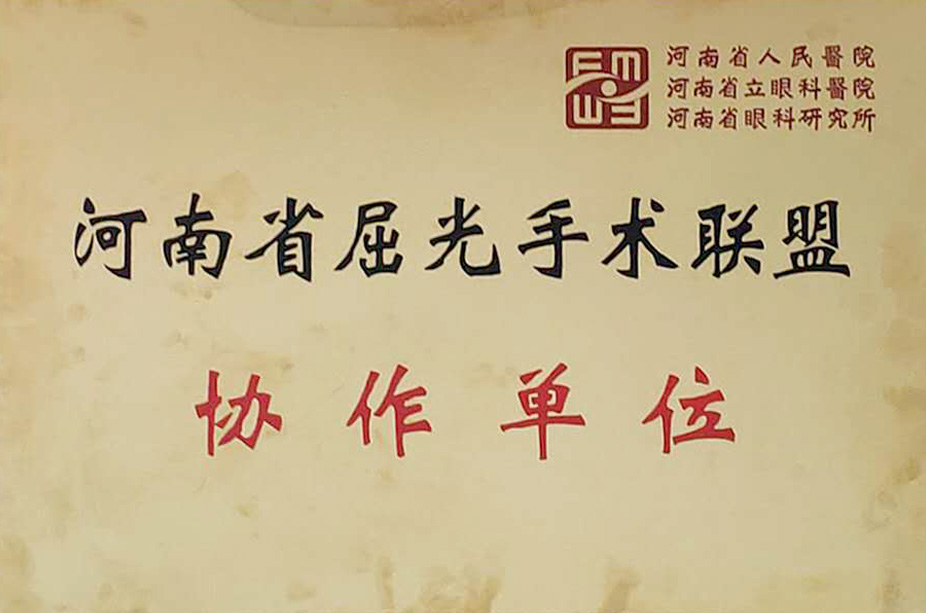 河南省人民醫院
河南省立眼科醫院
河南省眼科研究所
河南省屈光手术联盟
协作单位